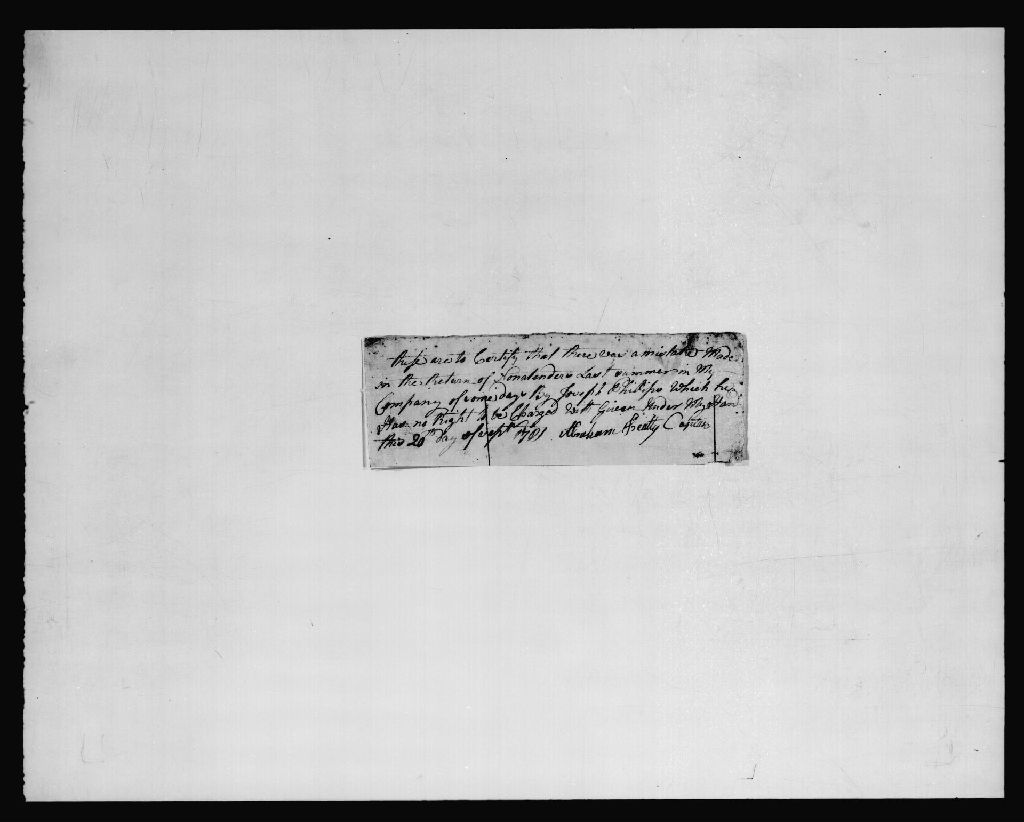 these are to Certify that there was a mistake Made
in the Return of Nonatenders Last summer in My
Company of some days By Joseph Philips Which he
Has no Right to be Charged with Given Under My Hand
this 20th day of Sept 1781. Abraham Captain